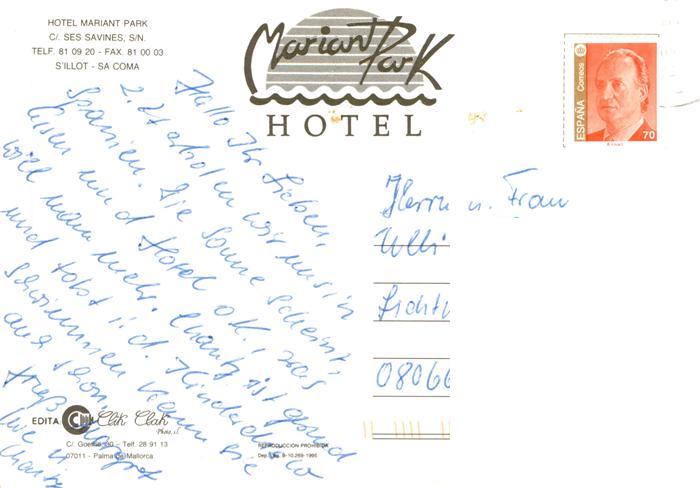 HOTEL MARIANT PARK
C/. SES SAVINES, S/N.
TELF. 81 09 20 - FAX. 81 00 03
S'ILLOT - SA COMA
Mariant Park
HOTEL
ESPAÑA
Correos
70
Hallo Ihr Lieben,
z. Zt. erholen wir uns in
Spanien. Die Sonne scheint,
Essen und Hotel o.k., was
will man mehr. ist gesund
und tobt i. d.
schwimmen kann sie
auch schon.
Herrn u. Frau
Ulli
0806
EDITA
Clik Clak
Photo, s.l.
- Telf. 28 91 13
07011 - Palma de Mallorca
REPRODUCCION PROHIBIDA